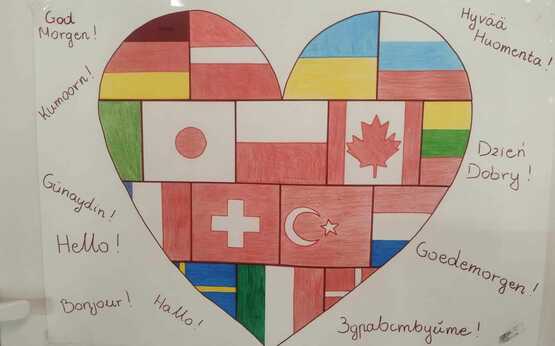 God
Morgen!
Kumoorn!
Günaydin!
Hello!
Bonjour!
Hallo!
Hyvää
Huomenta!
Dzień
Dobry!
Goedemorgen!
Здравствуйте!